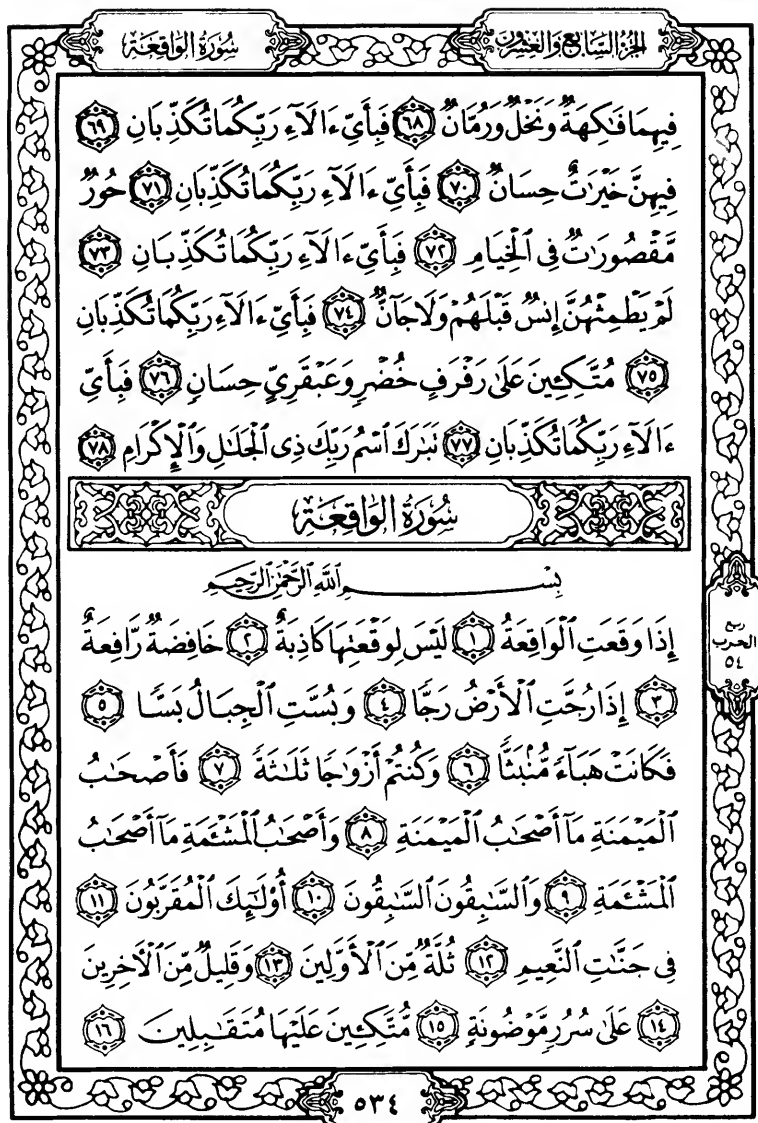 الجزء السابع والعشرون
سُورَةُ الوَاقِعَة
فِيهِمَا فَٰكِهَةٌ وَنَخْلٌ وَرُمَّانٌ ٦٨ فَبِأَيِّ ءَالَآءِ رَبِّكُمَا تُكَذِّبَانِ ٦٩
فِيهِنَّ خَيْرَٰتٌ حِسَانٌ ٧٠ فَبِأَيِّ ءَالَآءِ رَبِّكُمَا تُكَذِّبَانِ ٧١ حُورٌ
مَّقْصُورَٰتٌ فِى ٱلْخِيَامِ ٧٢ فَبِأَيِّ ءَالَآءِ رَبِّكُمَا تُكَذِّبَانِ ٧٣
لَمْ يَطْمِثْهُنَّ إِنسٌ قَبْلَهُمْ وَلَا جَآنٌّ ٧٤ فَبِأَيِّ ءَالَآءِ رَبِّكُمَا تُكَذِّبَانِ
٧٥ مُتَّكِـِٔينَ عَلَىٰ رَفْرَفٍ خُضْرٍ وَعَبْقَرِىٍّ حِسَانٍ ٧٦ فَبِأَيِّ
ءَالَآءِ رَبِّكُمَا تُكَذِّبَانِ ٧٧ تَبَٰرَكَ ٱسْمُ رَبِّكَ ذِى ٱلْجَلَٰلِ وَٱلْإِكْرَامِ ٧٨
سُورَةُ الوَاقِعَة
بِسْمِ ٱللَّهِ ٱلرَّحْمَٰنِ ٱلرَّحِيمِ
إِذَا وَقَعَتِ ٱلْوَاقِعَةُ ١ لَيْسَ لِوَقْعَتِهَا كَاذِبَةٌ ٢ خَافِضَةٌ رَّافِعَةٌ
٣ إِذَا رُجَّتِ ٱلْأَرْضُ رَجًّا ٤ وَبُسَّتِ ٱلْجِبَالُ بَسًّا ٥
فَكَانَتْ هَبَآءً مُّنۢبَثًّا ٦ وَكُنتُمْ أَزْوَٰجًا ثَلَٰثَةً ٧ فَأَصْحَٰبُ
ٱلْمَيْمَنَةِ مَآ أَصْحَٰبُ ٱلْمَيْمَنَةِ ٨ وَأَصْحَٰبُ ٱلْمَشْـَٔمَةِ مَآ أَصْحَٰبُ
ٱلْمَشْـَٔمَةِ ٩ وَٱلسَّٰبِقُونَ ٱلسَّٰبِقُونَ ١٠ أُو۟لَٰٓئِكَ ٱلْمُقَرَّبُونَ ١١
فِى جَنَّٰتِ ٱلنَّعِيمِ ١٢ ثُلَّةٌ مِّنَ ٱلْأَوَّلِينَ ١٣ وَقَلِيلٌ مِّنَ ٱلْءَاخِرِينَ
١٤ عَلَىٰ سُرُرٍ مَّوْضُونَةٍ ١٥ مُّتَّكِـِٔينَ عَلَيْهَا مُتَقَٰبِلِينَ ١٦
ربع
الحزب
٥٤
٥٣٤